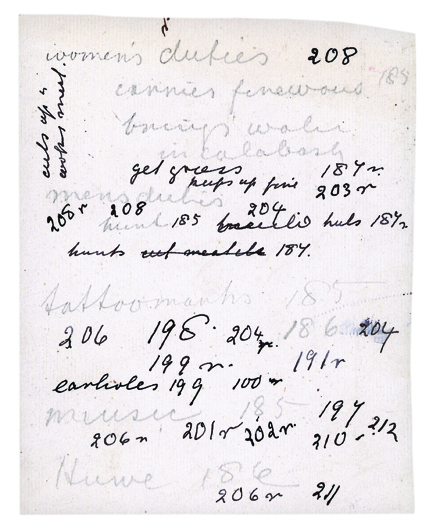 women's duties 208
carries firewood 185
brings water
in calabash
cuts up &
cooks meat.
get grass 187r.
keeps up fire 203r
mens duties
208r 208 204
hunt 185 builds huts 187r
hunts cut meat 187.
tattoo marks 185
206 198. 204r. 186 204
199r. 191r
earholes 199 100r
music 185 197
206r 201r 202r. 210r. 212
Huwe 186
206r 211